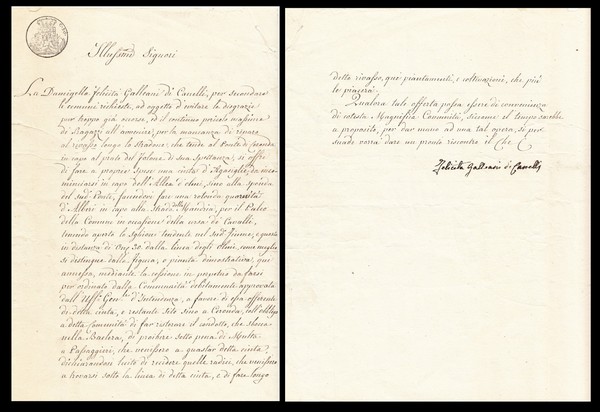 Illustmi Signori
La Damigella Felicita Galleani di Canelli, per secondare
le comuni richieste, ad oggetto d'evitare le disgrazie
pur troppo già occorse, ed il continuo pericolo massime
de' Ragazzi all'avvenire, per la mancanza di riparo
al rivasso lungo lo Stradone, che tende al Ponte di
in capo al prato del Tolone di sua Spettanza, si offre
di fare a proprie spese una cinta d'Agaiglio, da
minciarsi in capo dell'Allea d'olmi, sino alla sponda
del sudo Ponte, facendovi fare una rotonda
d'Alberi in capo alla Strada Mandria, per il Palio
della Comune in occasione della corsa de' Cavalli,
tenendo aperto lo sglione tendente nel sudo Fiume, e questa
in distanza di Onc. 30. dalla linea degli Olmi, come meglio
si distingue dalla Figura, o pianta dimostrativa, qui
annessa, mediante la cessione in perpetuo da farsi
per ordinato dalla Communità debitamente approvata
dall'Uffo Genle d'Intendenza, a favore di essa offerente
di detta cinta, e restante sito sino a Coronda, coll'obbligo
a detta Comunità di far ristorare il condotto, che
nella Bealera, di proibire sotto pena di Multa
a Passaggieri, che venissero a guastar detta cinta,
dichiarandosi lecito di recidere quelle radici, che venissero
a trovarsi sotto la linea di detta cinta, e di fare lungo
detto rivasso, que' piantamenti, e coltivazioni, che più
le piacerà.
Qualora tale offerta possa essere di convenienza
di cotesta Magnifica Comunità, siccome il tempo sarebbe
a proposito, per dar mano ad una tal opera, si per
suade vorrà dare un pronto riscontro il Che
Felicita Galleani di Canelli